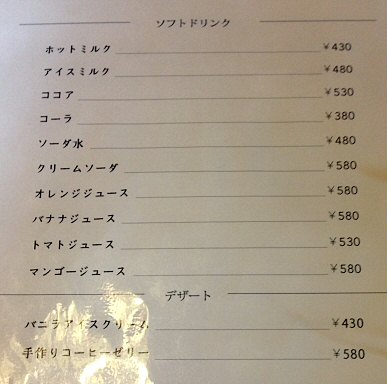 ソフトドリンク
ホットミルク ¥430
アイスミルク ¥480
ココア ¥530
コーラ ¥380
ソーダ水 ¥480
クリームソーダ ¥580
オレンジジュース ¥580
バナナジュース ¥580
トマトジュース ¥530
マンゴージュース ¥580
デザート
バニラアイスクリーム ¥430
手作りコーヒーゼリー ¥580